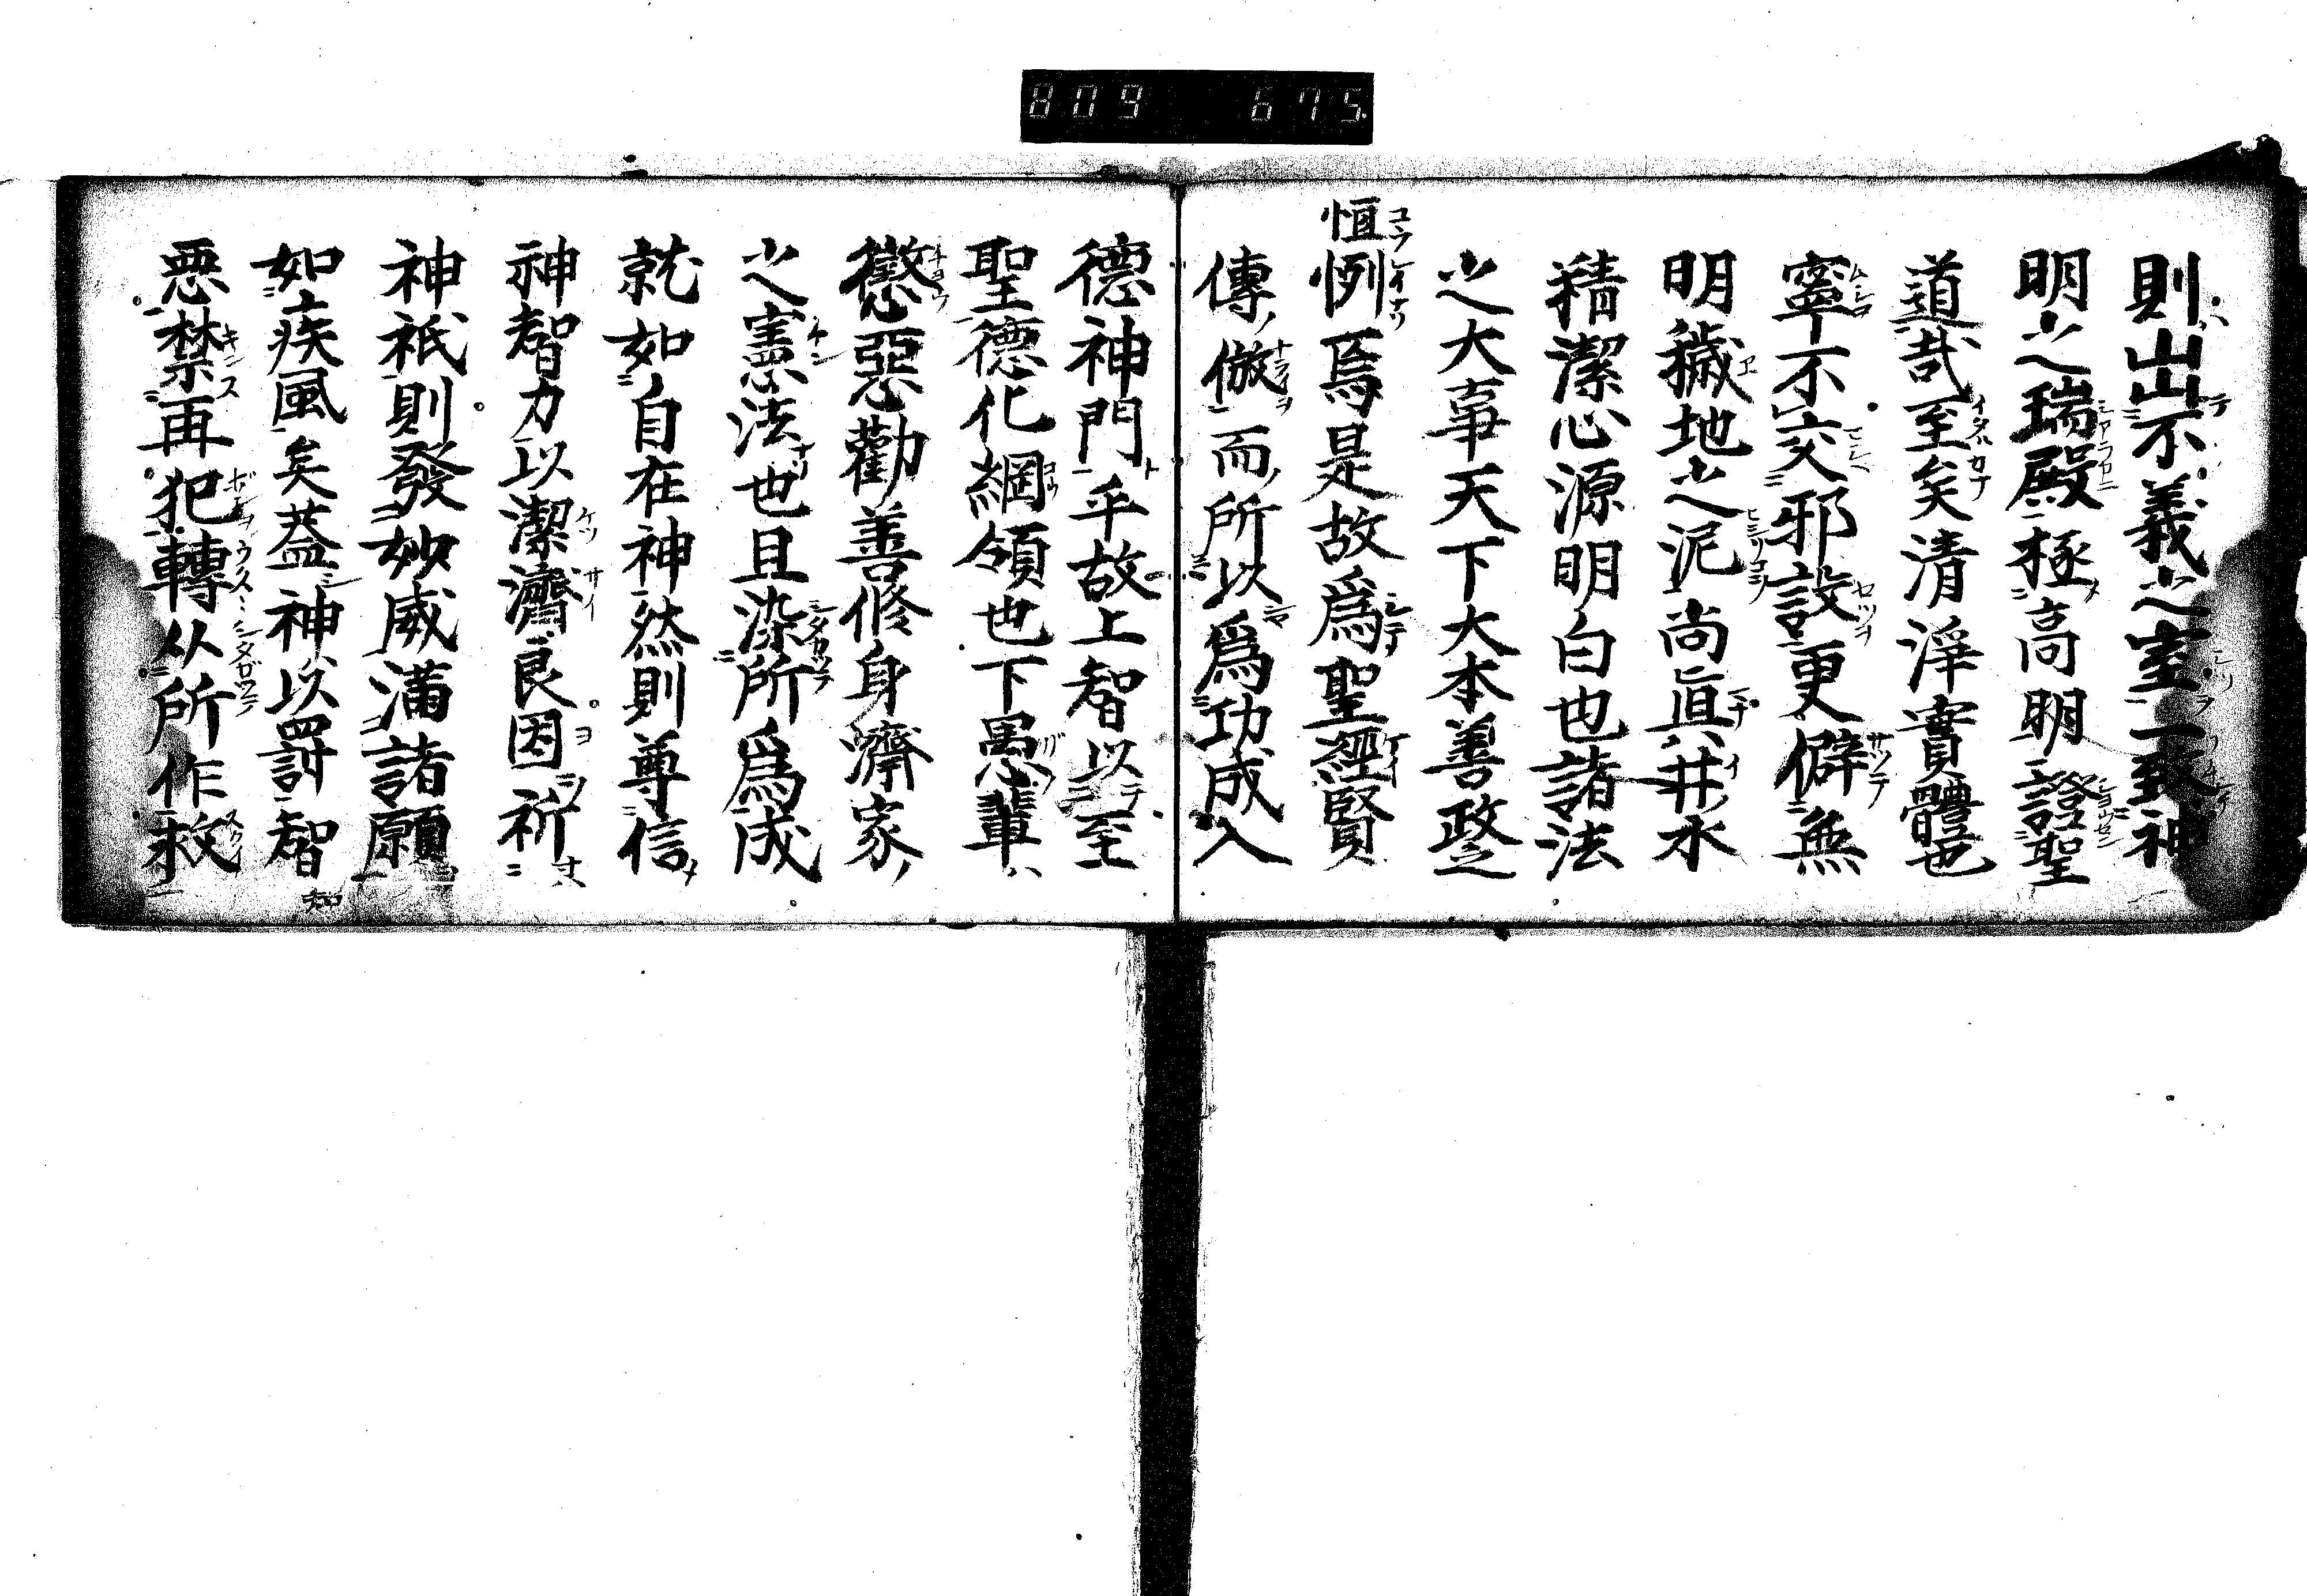 809 675
則出不義之室一致神
明之瑞殿極高明證聖
道哉至矣清淨實體也
寧不交邪設更僻無
明穢地之泥尚眞井水
精潔心源明白也諸法
之大事天下大本善政之
恒例焉是故爲聖經賢
傳倣而所以爲功成入
德神門乎故上智以至
聖德化綱領也下愚輩
懲惡勸善修身濟家
之憲法也且染所爲成
就如自在神然則尊信
神智力以潔濟良因祈
神祇則發妙威滿諸願
如疾風矣蓋神以罸智
惡禁再犯轉从所作救